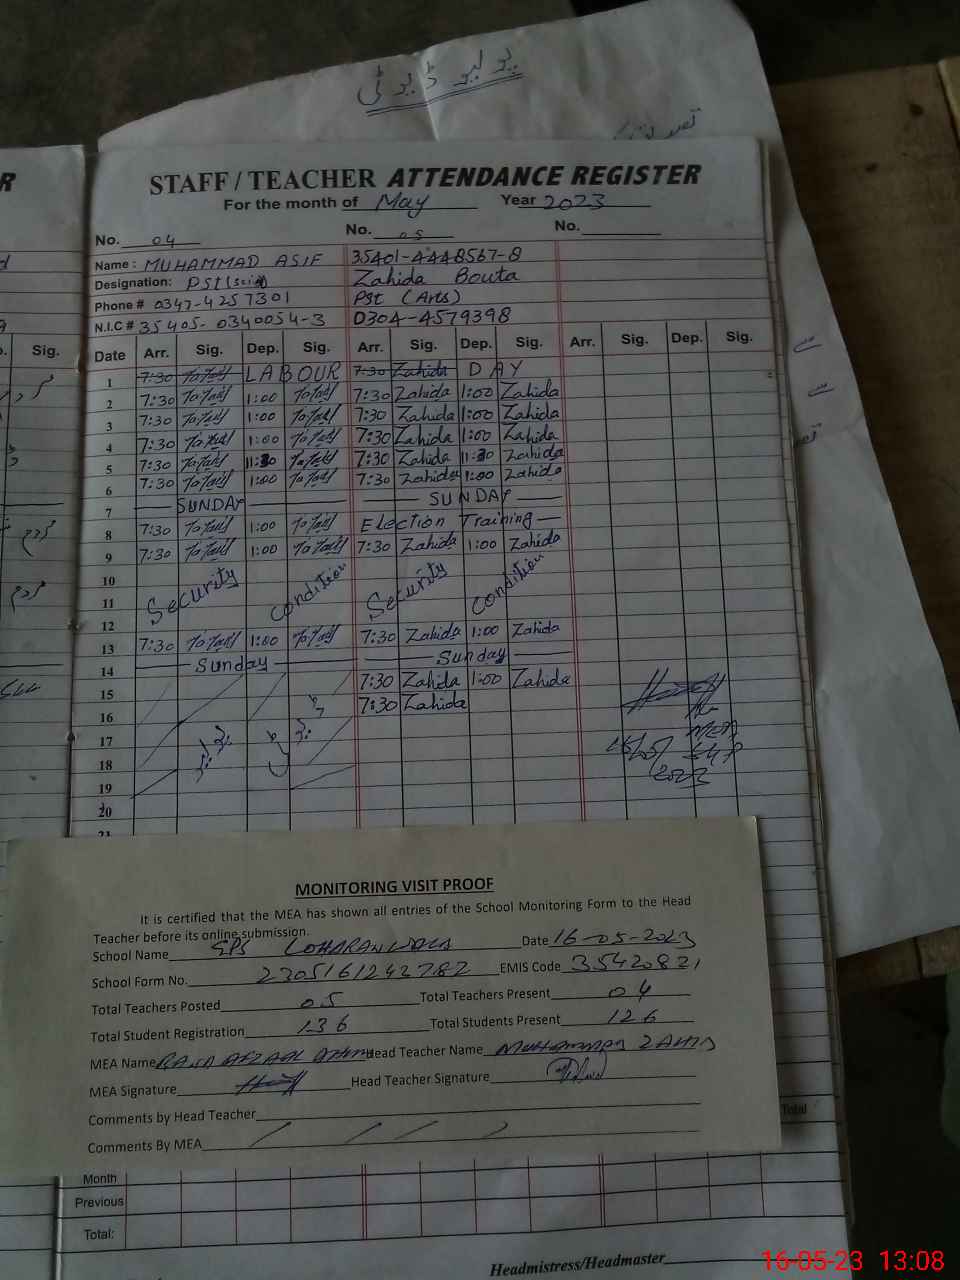 پولیو ڈیوٹی
R
STAFF / TEACHER ATTENDANCE REGISTER
For the month of May Year 2023
No. 04 No. 05 No.
Name : MUHAMMAD ASIF 35401-4448567-8
Designation: PST (Scie) Zahida Bouta
Phone # 0347-4257301 Pst (Arts)
N.I.C # 35405-0340054-3 0304-4579398
Sig. Date Arr. Sig. Dep. Sig. Arr. Sig. Dep. Sig. Arr. Sig. Dep. Sig.
1 7:30 LABOUR 7:30 Zahida DAY
2 7:30 1:00 7:30 Zahida 1:00 Zahida
3 7:30 1:00 7:30 Zahida 1:00 Zahida
4 7:30 1:00 7:30 Zahida 1:00 Zahida
5 7:30 11:30 7:30 Zahida 11:30 Zahida
6 7:30 1:00 7:30 Zahida 1:00 Zahida
7 SUNDAY SUNDAY
8 7:30 1:00 Election Training
9 7:30 1:00 7:30 Zahida 1:00 Zahida
10
11 Security condition Security condition
12
13 7:30 1:00 7:30 Zahida 1:00 Zahida
14 Sunday Sunday
15 7:30 Zahida 1:00 Zahida
16 7:30 Zahida
17
18
19
20
21
16/05/2023
MEA
MONITORING VISIT PROOF
It is certified that the MEA has shown all entries of the School Monitoring Form to the Head
Teacher before its online submission.
School Name GPS LOHARANWALA Date 16-05-2023
School Form No. 2305161242782 EMIS Code 35420821
Total Teachers Posted 05 Total Teachers Present 04
Total Student Registration 136 Total Students Present 126
MEA Name RANA AFZAAL Head Teacher Name MUHAMMAD ZAHID
MEA Signature Head Teacher Signature
Comments by Head Teacher
Comments By MEA
Total
Month
Previous
Total:
Headmistress/Headmaster
16-05-23 13:08